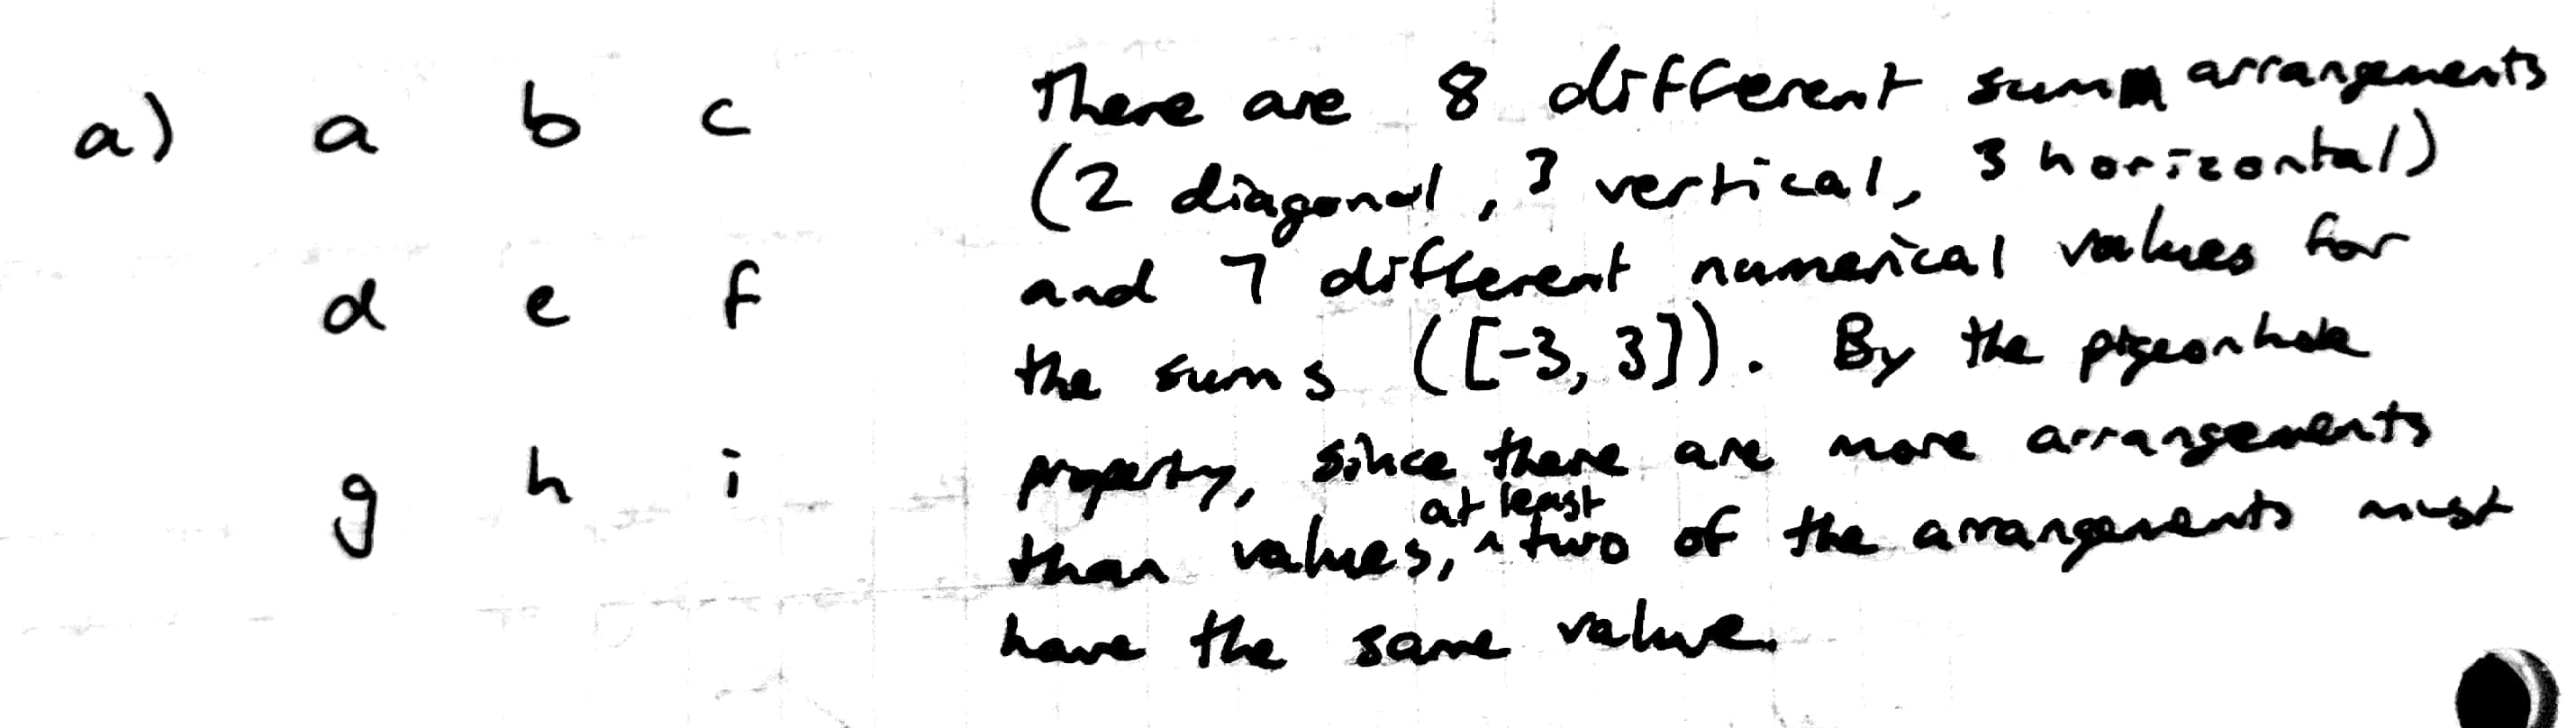 a) a b c
d e f
g h i
There are 8 different sum arrangements
(2 diagonal, 3 vertical, 3 horizontal)
and 7 different numerical values for
the sums ([-3, 3]). By the pigeonhole
property, since there are more arrangements
than values, at least two of the arrangements must
have the same value.